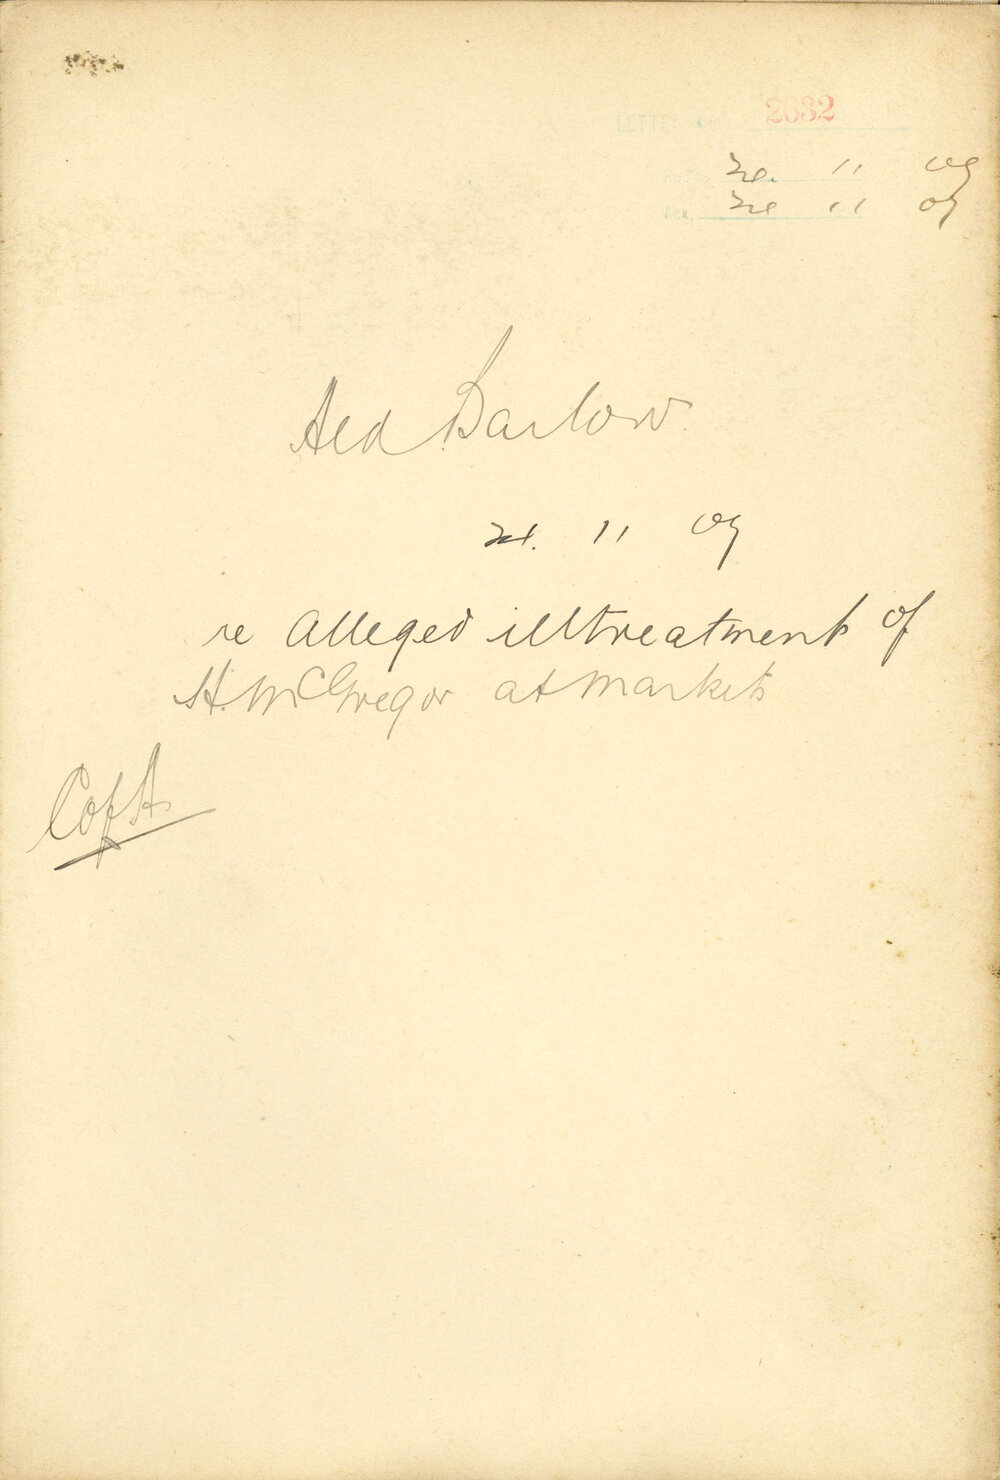 LETTER 2032
21. 11 07
Ack. 21 11 07
Ald Barlow
21. 11 07
re alleged illtreatment of
H. McGregor at markets
C of A